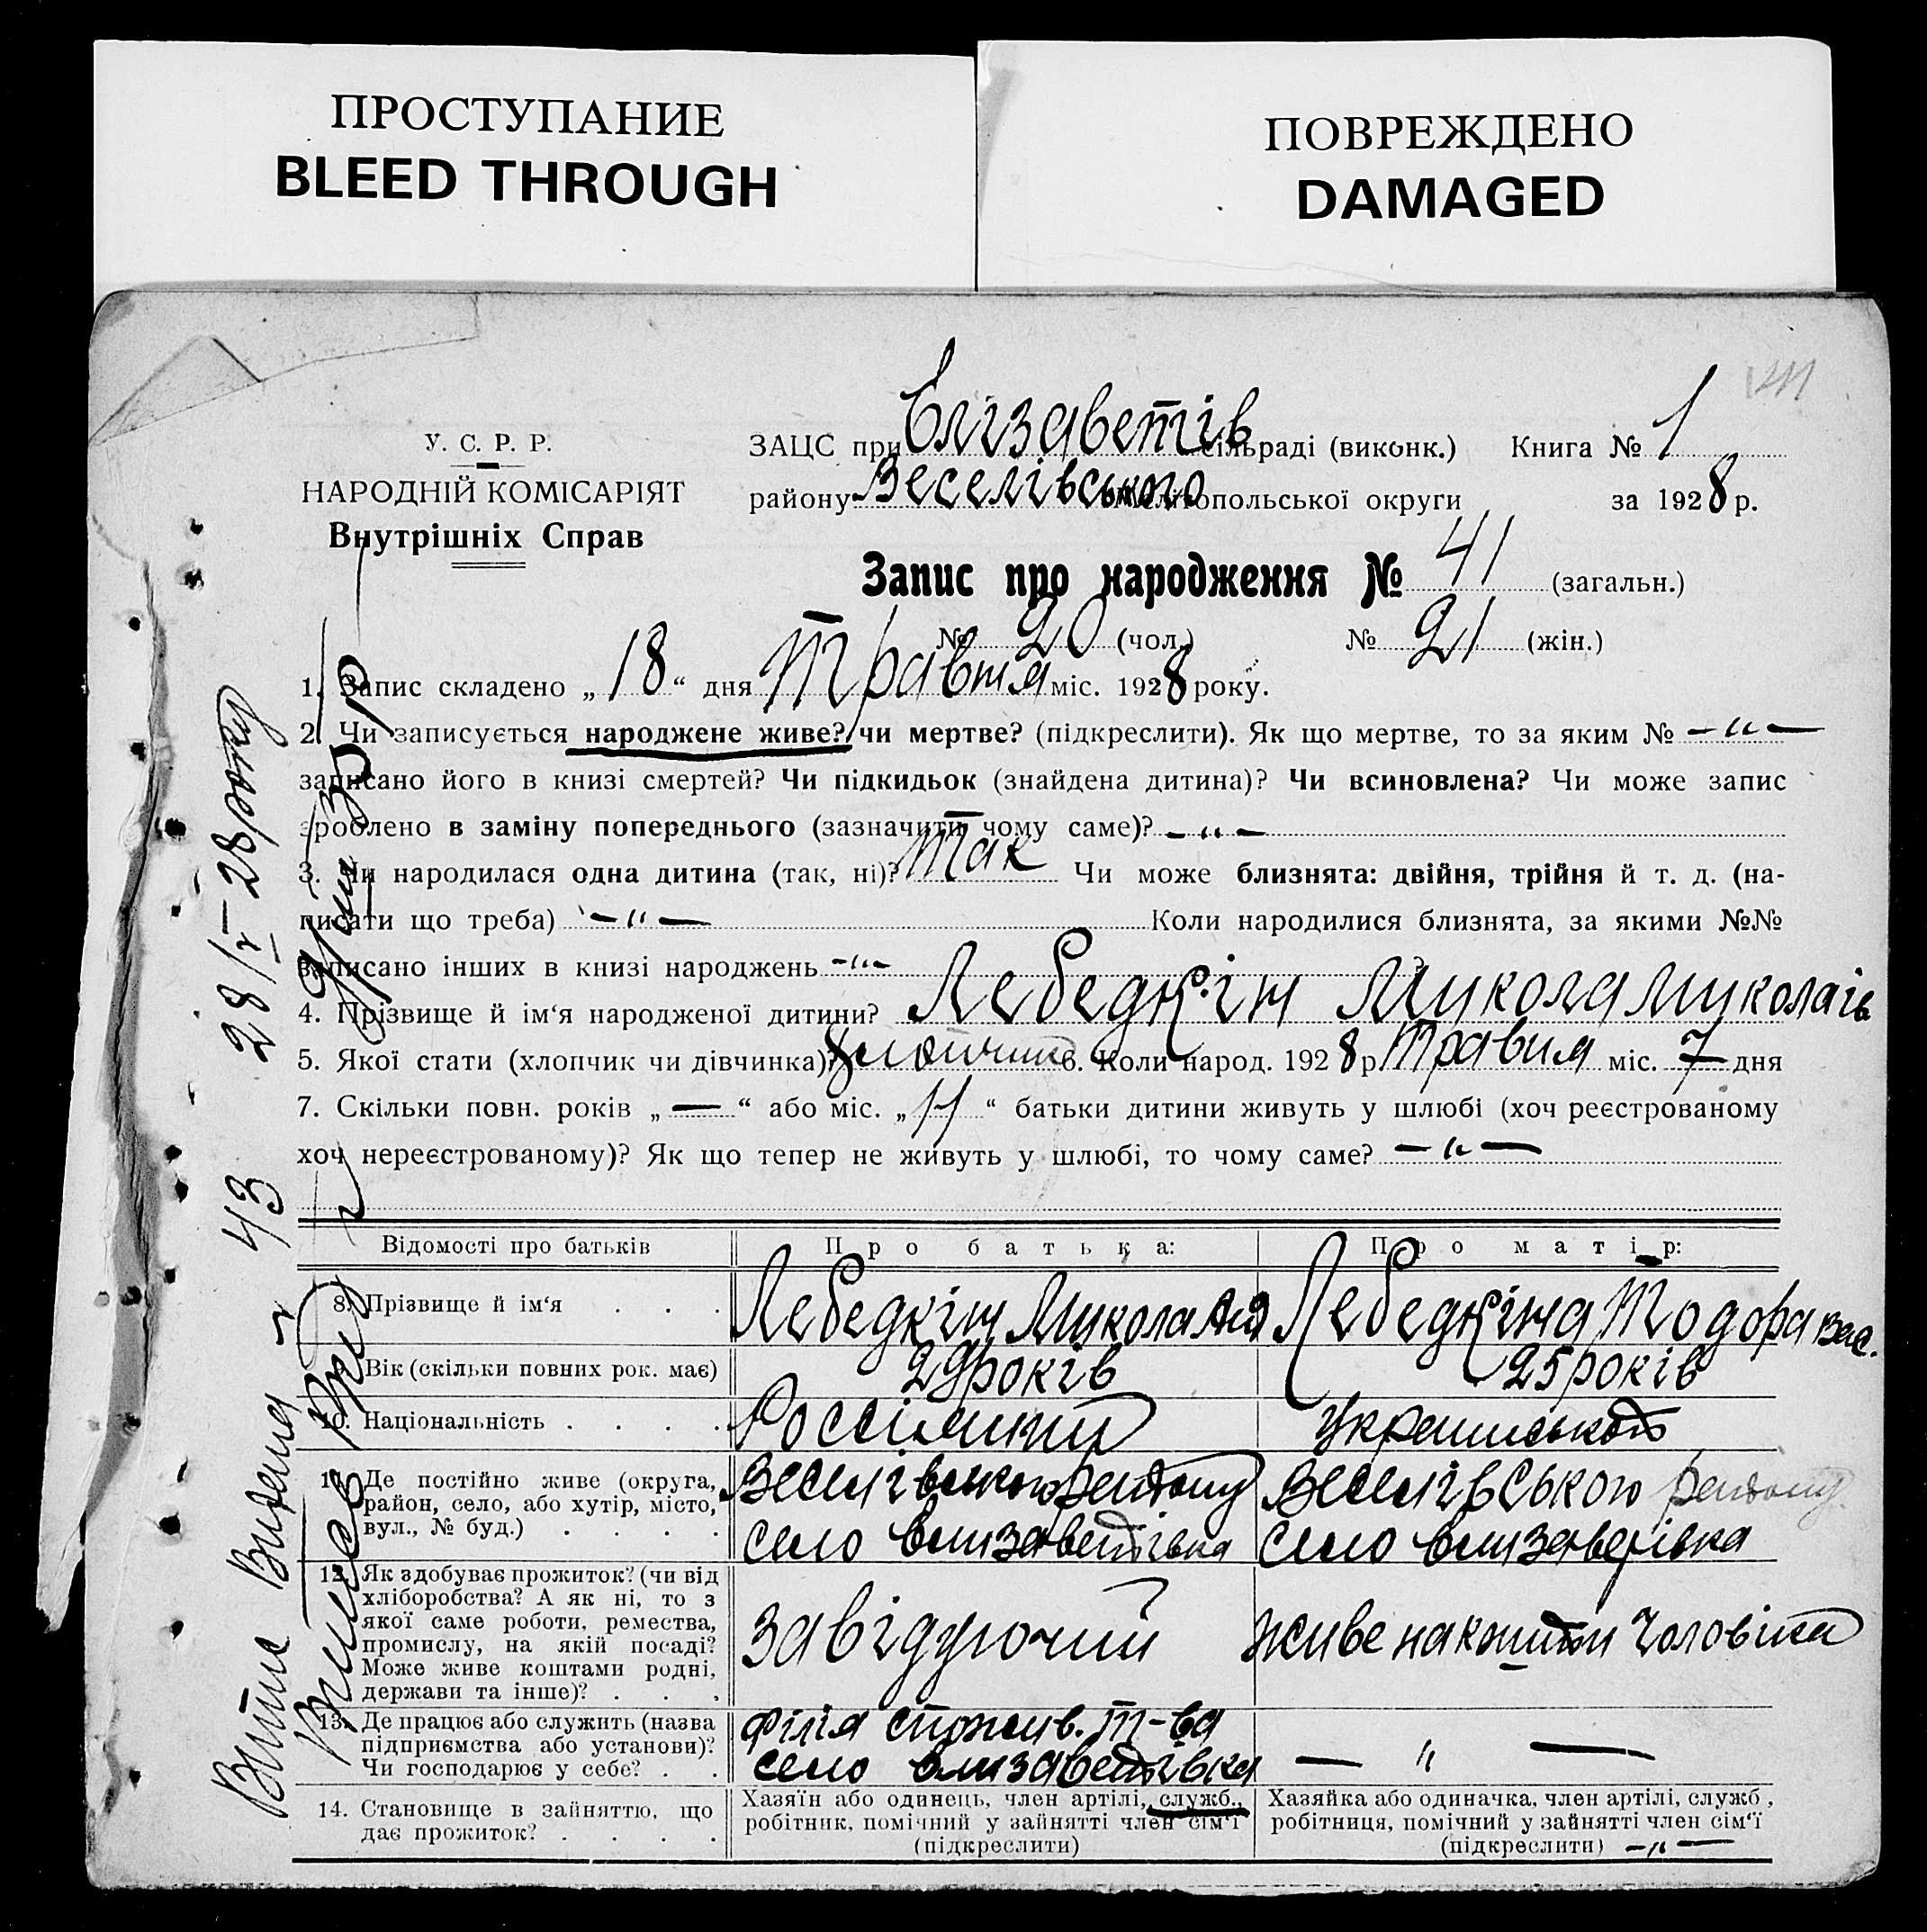 ПРОСТУПАНИЕ
BLEED THROUGH
ПОВРЕЖДЕНО
DAMAGED
У. С. Р. Р.
НАРОДНІЙ КОМІСАРІЯТ
Внутрішніх Справ
ЗАЦС при Єлізаветів сільраді (виконк.) Книга № 1
району Веселівського Мелітопольської округи за 1928 р.
Запис про народження № 41 (загальн.)
№ 20 (чол.) № 21 (жін.)
1. Запис складено „ 18 “ дня Травня міс. 1928 року.
2. Чи записується народжене живе? чи мертве? (підкреслити). Як що мертве, то за яким № — „ —
записано його в книзі смертей? Чи підкидьок (знайдена дитина)? Чи всиновлена? Чи може запис
зроблено в заміну попереднього (зазначити чому саме)? — „ —
3. Чи народилася одна дитина (так, ні)? Так Чи може близнята: двійня, трійня й т. д. (на-
писати що треба) — „ — Коли народилися близнята, за якими №№
записано інших в книзі народжень — „ —
4. Прізвище й ім‘я народженої дитини? Лебедкін Микола Миколаїв
5. Якої стати (хлопчик чи дівчинка)? хлопчик 6. Коли народ. 1928 р. Травня міс. 7 дня
7. Скільки повн. років „ — “ або міс. „ 11 “ батьки дитини живуть у шлюбі (хоч реєстрованому
хоч нереєстрованому)? Як що тепер не живуть у шлюбі, то чому саме? — „ —
Відомості про батьків Про батька: Про матір:
8. Прізвище й ім‘я . . . Лебедкін Микола Лебедкіна Тодора Вас.
9. Вік (скільки повних рок. має) 29 років 25 років
10. Національність . . . . 
11. Де постійно живе (округа,
район, село, або хутір, місто,
вул., № буд.) . . . .
Веселівського району
село Єлизаветівка
Веселівського району
село
12. Як здобуває прожиток? (чи від
хліборобства? А як ні, то з
якої саме роботи, ремества,
промислу, на якій посаді?
Може живе коштами родні,
держави та інше)? . . .
завідуючий
живе на кошти чоловіка
13. Де працює або служить (назва
підприємства або установи)?
Чи господарює у себе? . .
Філія спожив. т-ва
село Єлизаветівка
— „ —
14. Становище в зайняттю, що
дає прожиток? . . . .
Хазяїн або одинець, член артілі, служб.,
робітник, помічний у зайнятті член сім‘ї
(підкреслити)
Хазяйка або одиначка, член артілі, служб.,
робітниця, помічний у зайнятті член сім‘ї
(підкреслити) — „ —
43 28/V-28 року